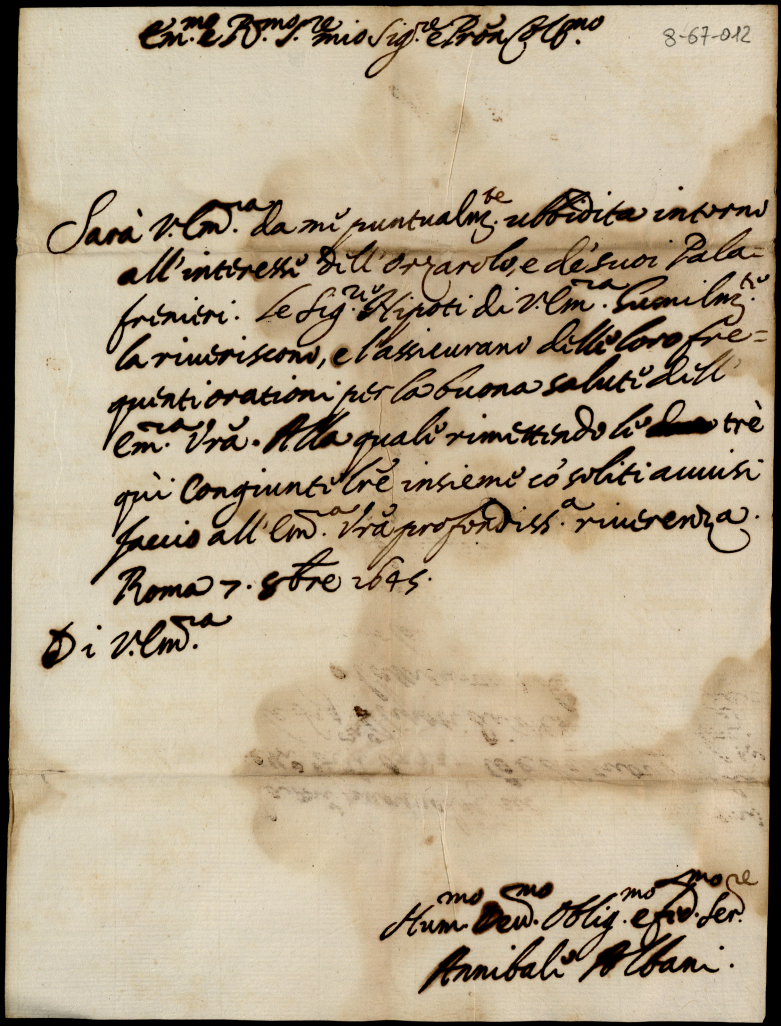 Em.mo e R.mo S.re mio Sig.re e Prõn Col.mo
8-67-012
Sarà V. Em.ra da me puntualm.te ubbidita intorno
all'interesse dell'Orzarolo, e de' suoi Pala=
frenieri. Le Sig.re Nipoti di V. Em.ra humilm.te
la riveriscono, e l'assicurano delle loro fre=
quenti orationi per la buona salute dell'
Em.ra Vrã. Alla quale rimettendo le trè
quì congiunte lrẽ insieme có soliti avvisi
faccio all'Em.ra Vrã profondiss.a riverenza.
Roma 7. 8bre 1645.
Di V. Em.ra
Hum.mo Dev.mo Oblig.mo e fed.mo Ser.re
Annibale Albani.